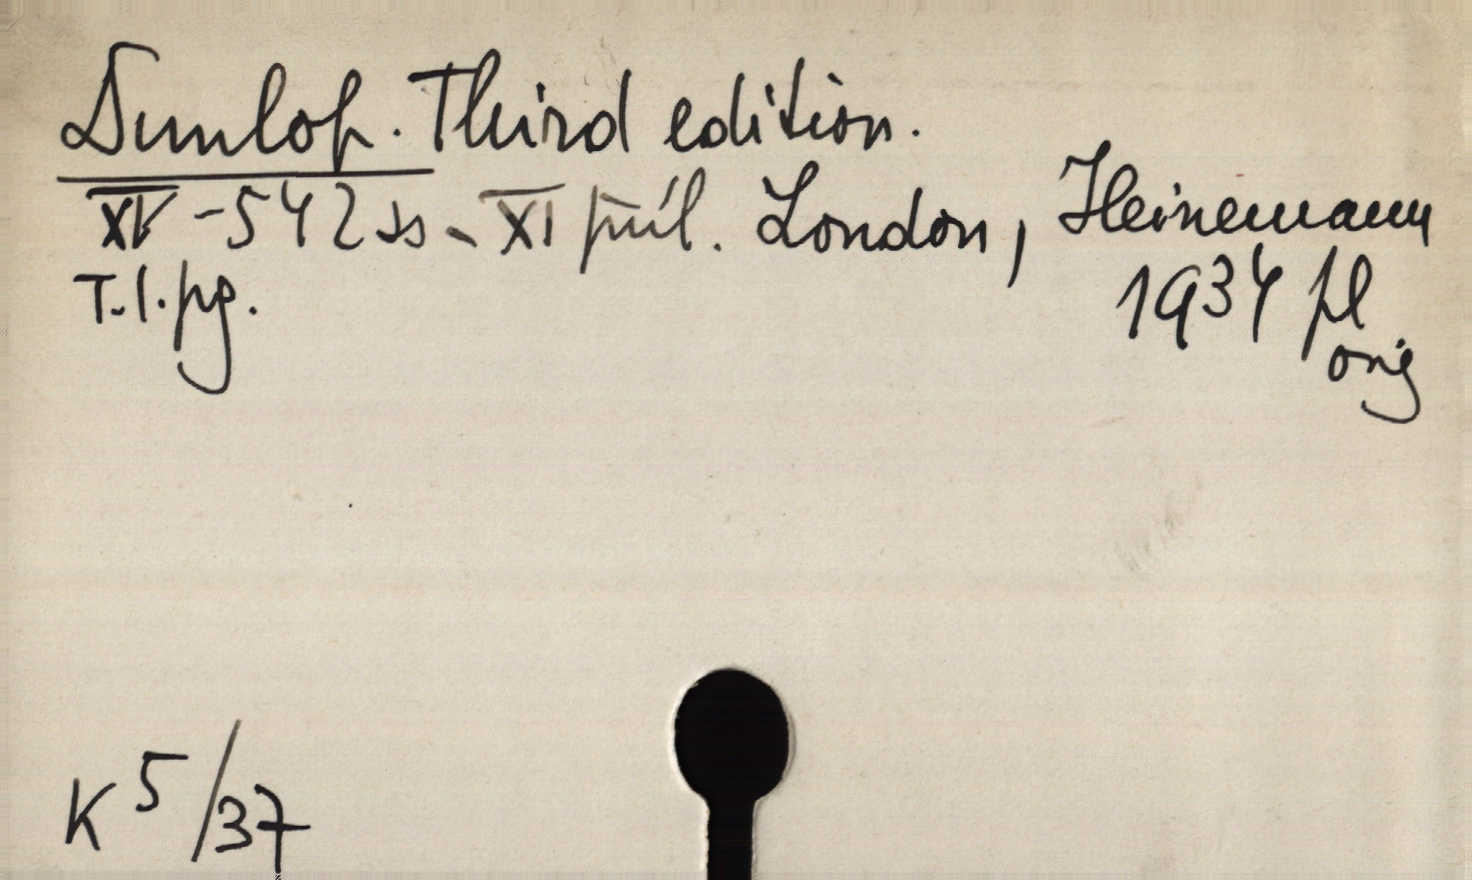 Dunlop. Third edition.
XV - 542 ss - XI příl. London, Heinemann
T.l.pg. 1934 pl
orig
K 5/37